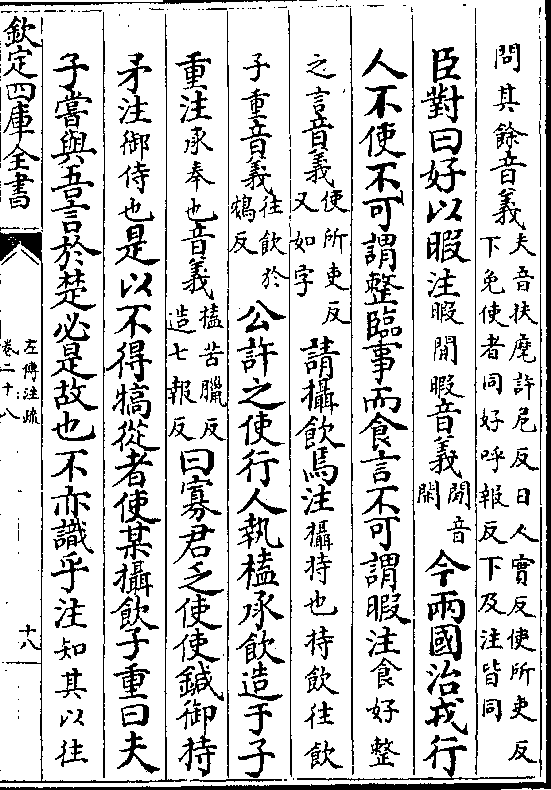 問其餘音義夫音扶麾許危反日人實反使所吏反下免使者同好呼報反下及注皆同
臣對曰好以暇注暇閒暇音義閒音閑今兩國治戎行
人不使不可謂整臨事而食言不可謂暇注食好整
之言音義使所吏反又如字請攝飲焉注攝持也持飲往飲
子重音義往飲於鴆反公許之使行人執榼承飲造于子
重注承奉也音義榼苦臘反造七報反曰寡君乏使使鍼御持
矛注御侍也是以不得犒從者使某攝飲子重曰夫
子嘗與吾言於楚必是故也不亦識乎注知其以往
欽定四庫全書
左傳注疏
卷二十八
十八